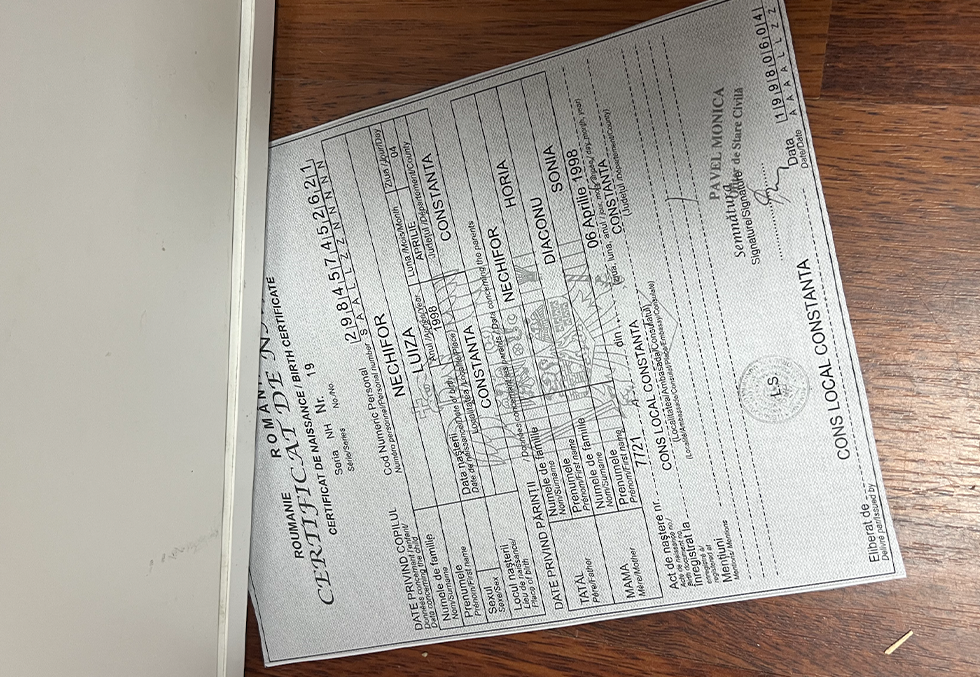 ROUMANIE
CERTIFICAT DE
CERTIFICAT DE NAISSANCE / BIRTH CERTIFICATE
Seria NH Nr. 19
Série/Series No./No.
Cod Numeric Personal 2 9 8 4 5 7 4 5 2 6 2 1
Numéro personnel/Personal number S A A L L Z Z N N N N N
DATE PRIVIND COPILUL
Données concernant l'enfant/
Data concerning the child
Numele de familie NECHIFOR
Nom/Surname
Prenumele LUIZA
Prénom/First name
Sexul Data nașterii Anul /Année/Year Luna /Mois/Month Ziua /Jour/Day
Sexe/Sex Date de naissance/Date of birth 1998 APRILIE 04
Locul nașterii Localitatea /Localité/Place Județul /Département/County
Lieu de naissance/ CONSTANTA CONSTANTA
Place of birth
DATE PRIVIND PĂRINȚII / Données concernant les parents / Data concerning the parents
TATĂL Numele de familie NECHIFOR
Père/Father Nom/Surname
Prenumele HORIA
Prénom/First name
MAMA Numele de familie DIACONU
Mère/Mother Nom/Surname
Prenumele SONIA
Prénom/First name
Act de naștere nr. 7721 din 06 Aprilie 1998
Acte de naissance no./ (ziua, luna, anul / jour, mois, année/ day, month, year)
Birth document no.
Înregistrat la CONS LOCAL CONSTANTA CONSTANTA
enregistré à/ (Localitatea/Ambasada/Consulatul) (Județul /Département/County)
registered at (Localité/Ambassade/Consulat/Place/Embassy/Consulate)
Mențiuni
Mentions/ Mentions
PAVEL MONICA
Semnătura de Stare Civilă
Signature/Signature
L.S.
Eliberat de CONS LOCAL CONSTANTA Data 1 9 9 8 0 6 0 4
Délivré par/Issued by Date/Date A A A A L L Z Z